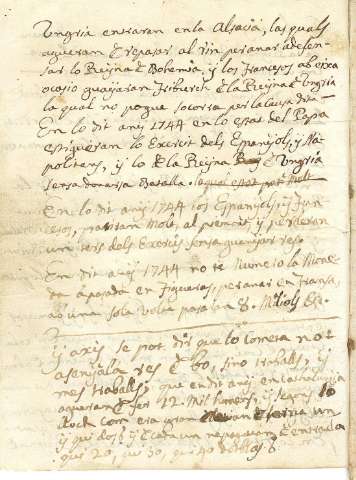 Ungria entraran en la Alsacia, las quals
agueran de repasar al rin per anar a defen-
sar lo Reyna de Bohemia, y los Francesos ab eixa
ocasio guañaren Friburch de la Reyna de Ungria
la qual no pogue socorrer per la causa dita
En lo dit any 1744 en lo estat del Papa
estigueran lo Exercit dels Espanyols, y Na-
politans, y lo de la Reyna de Ungria
sensa donarsa Batalla.
En lo dit any 1744 los Espanyols, y Fran-
cesos, pataran Molt, al piemont, y perderan
un ters dels Exercits sensa guanyar res.
En dit any 1744 no te Numero la Mone-
da a pasada en Figueras, per anar en fransa,
ab una sola volta pasaran 8. Milions &a.
Y axis se pot dir que lo Cometa not
asenyala res de bo, sino traballs, y
mes traballs, que en dit any en Cathalunya
agueran de fer 12 Mil homens, y segons lo
lloch com era gran un
y qui dos, y cada un
qui 20, qui 30, qui 40